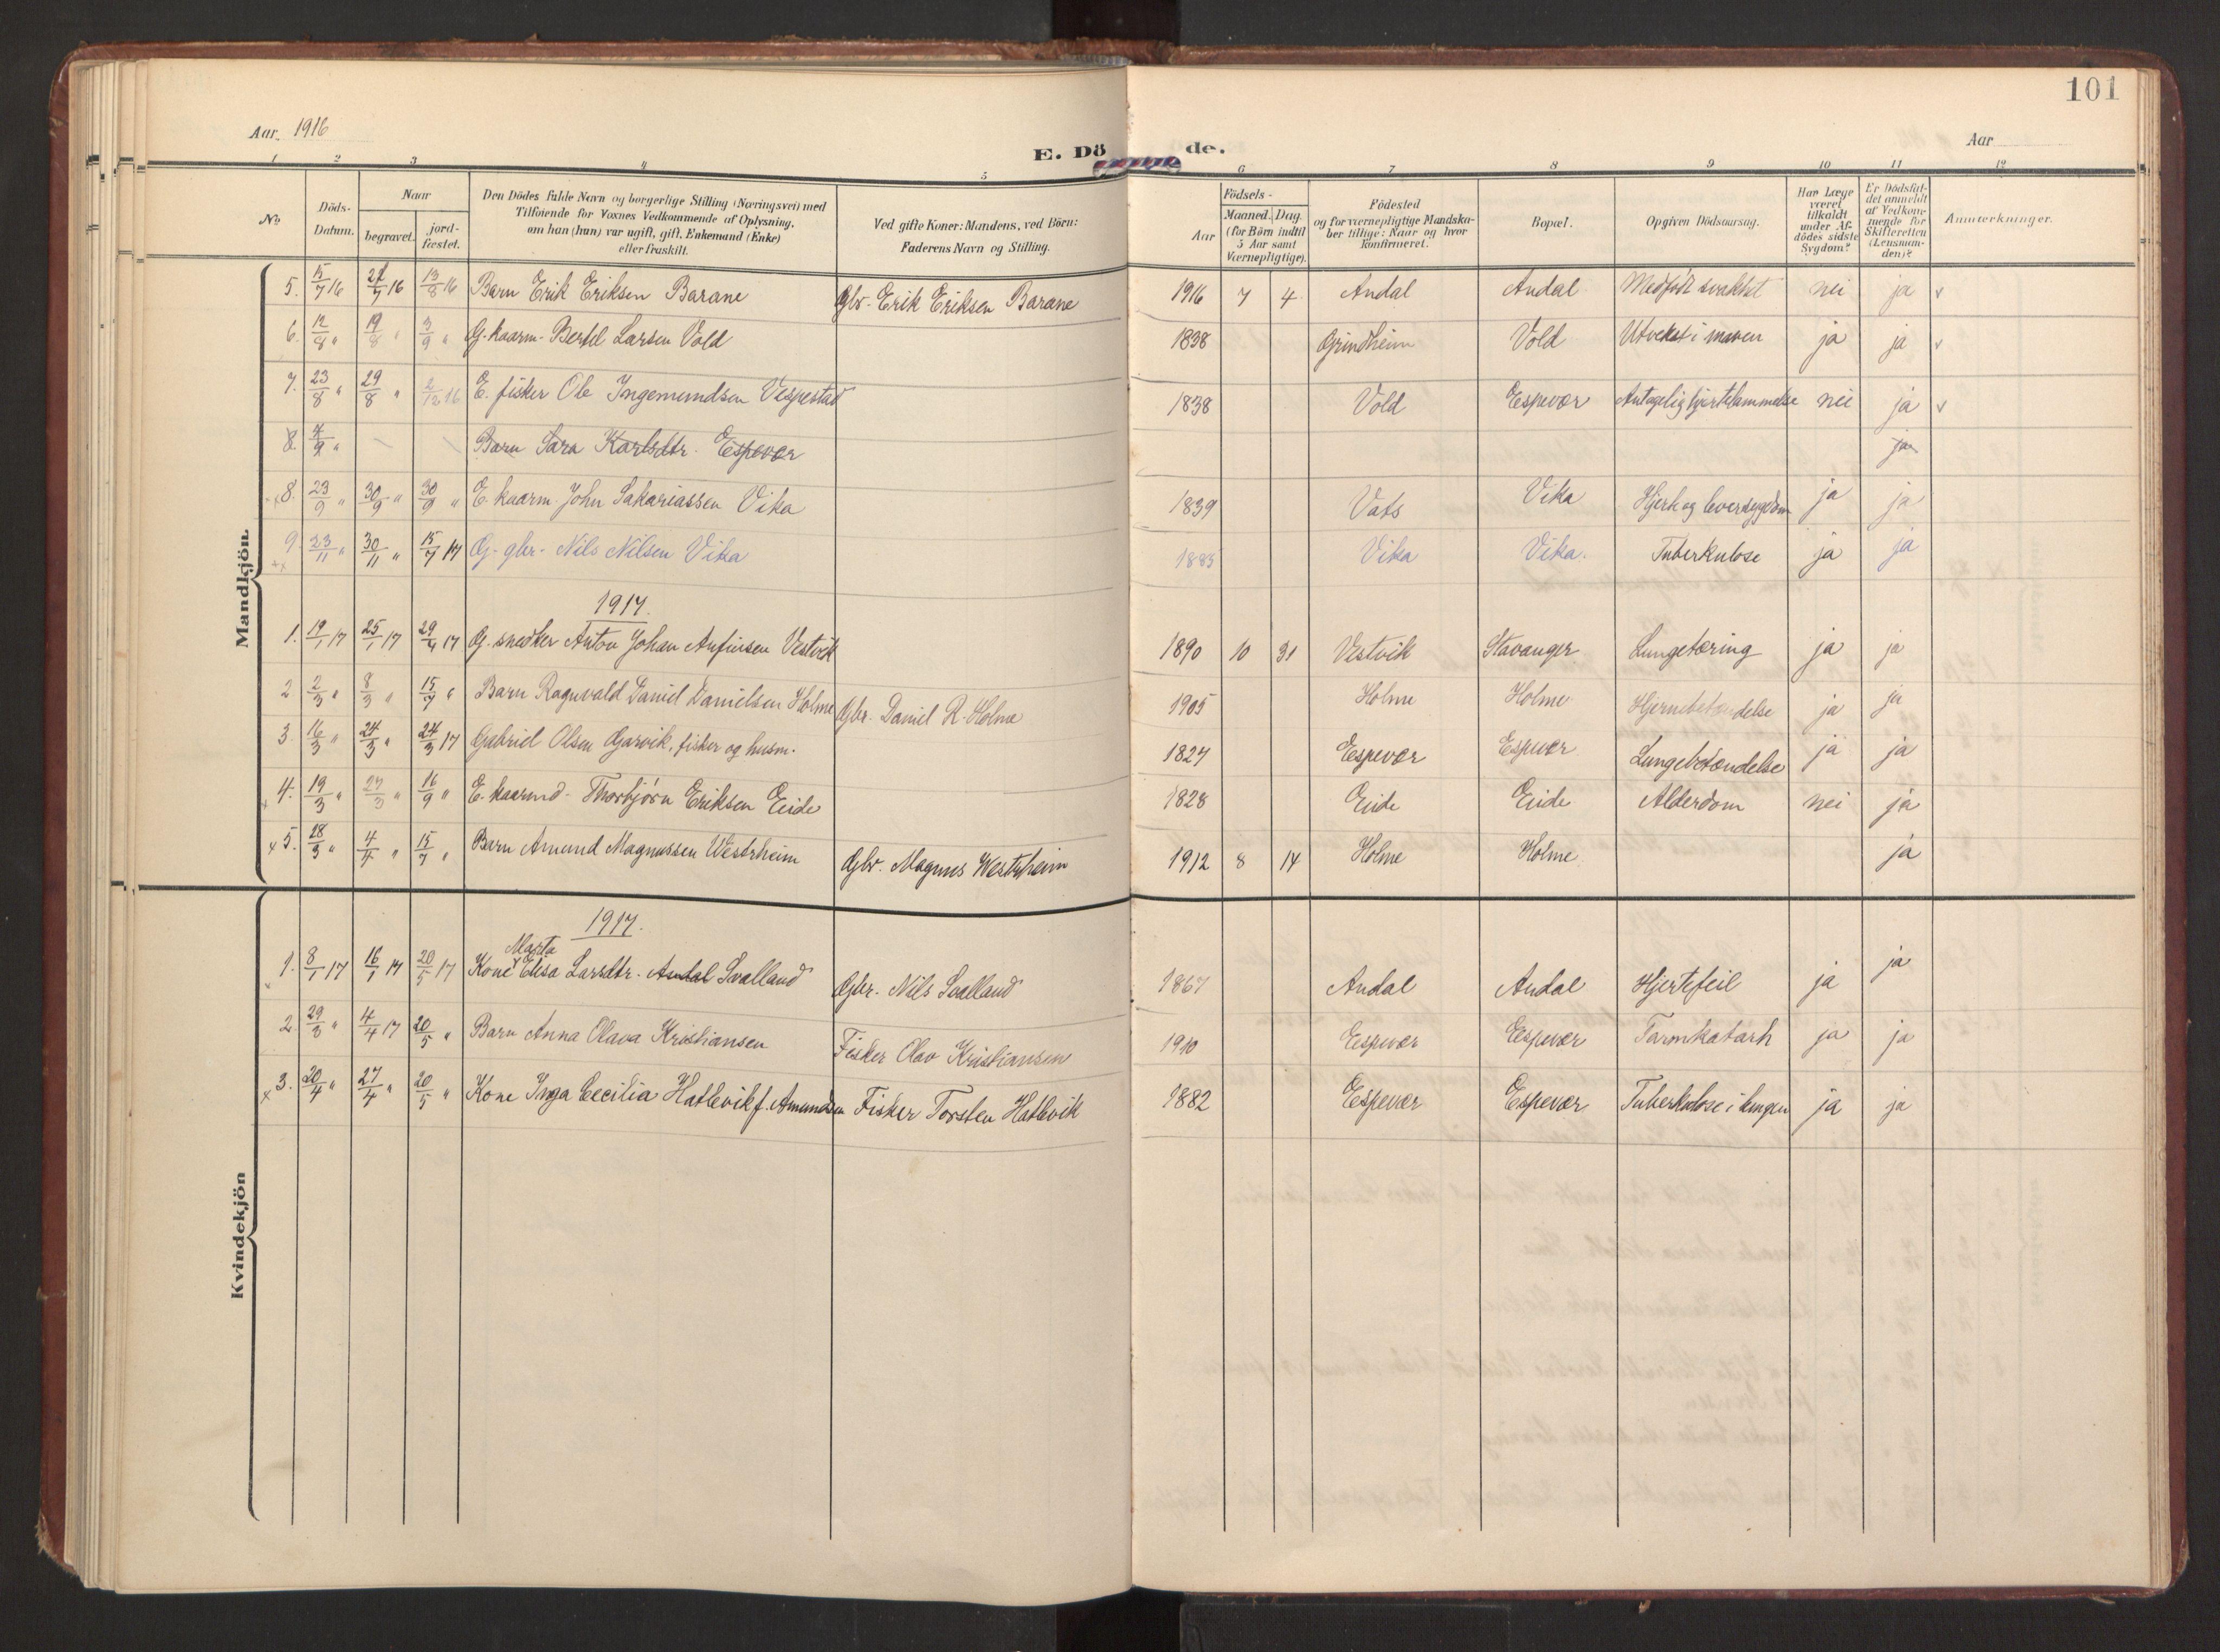 101
Aar 1916
Aar
E. Dö de.
1 2 3 4 5 6 7 8 9 10 11 12
No
Döds-Datum.
Naar
begravet.
jord-fæstet.
Den Dödes fulde Navn og borgerlige Stilling (Næringsvei) med
Tilföiende for Voxnes Vedkommende af Oplysning,
om han (hun) var ugift, gift, Enkemand (Enke)
eller fraskilt.
Ved gifte Koner: Mandens, ved Börn:
Faderens Navn og Stilling.
Födsels-
Aar
Maaned. Dag.
(for Börn indtil
5 Aar samt
Værnepligtige).
Födested
og for værnepligtige Mandska-
ber tillige: Naar og hvor
konfirmeret.
Bopæl.
Opgiven Dödsaarsag.
Har Læge
været
tilkaldt
under Af-
dödes sidste
Sygdom?
Er Dödsfal-
det anmeldt
af Vedkom-
mende for
Skifteretten
(Lensman-
den)?
Anmærkninger.
Mandkjön.
5. 15/7 16 21/7 16 13/8 16 Barn Erik Eriksen Barane Gbr. Erik Eriksen Barane 1916 7 4 Andal Andal Medfödt svakhet nei ja v
6. 12/8 " 19/8 " 3/9 " G. kaarm. Bertel Larsen Vold 1838 Grindheim Vold Utvekst i maven ja ja v
7. 23/8 " 29/8 " 2/12 16 E. fisker Ole Ingemundsen Vespestad 1838 Vold Espevær Antagelig hjertelammelse nei ja v
8. 4/9 " Barn Sara Karlsdtr. Espevær ja
x8. 23/9 " 30/9 " 30/9 " E. kaarm. John Sakariassen Vika 1839 Vats Vika Hjerte og leversygdom ja ja
9. 23/11 " 30/11 " 15/7 17 G. gbr. Nils Nilsen Vika 1885 Vika Vika. Tuberkulose ja ja
1917.
1. 19/1 17 25/1 17 29/4 17 G. snedker Anton Johan Anfinsen Vestvik 1890 10 31 Vestvik Stavanger Lungetæring ja ja
2 2/3 " 8/3 " 15/7 " Barn Ragnvald Daniel Danielsen Holme Gbr. Daniel R. Holme 1905 Holme Holme Hjernebetændelse ja ja
3. 16/3 " 24/3 " 24/3 17 Gabriel Olsen Gjarvik, fisker og husm. 1827 Espevær Espevær Lungebetændelse ja ja
x 4. 19/3 " 27/3 " 16/9 " E. kaarmd. Thorbjörn Eriksen Eide 1828 Eide Eide Alderdom nei ja
x 5. 28/3 " 4/4 " 15/7 " Barn Amund Magnussen Westrheim Gbr. Magnus Westrheim 1912 8 14 Holme Holme ja
Kvindekjön
1917.
Marta
x 1. 8/1 17 16/1 17 20/5 17 Kone Elisa Larsdtr. Andal Svalland Gbr. Nils Svalland 1867 Andal Andal Hjertefeil ja ja
2. 29/3 " 4/4 17 20/5 " Barn Anna Olava Kristiansen Fisker Olav Kristiansen 1910 Espevær Espevær Tarmkatarh ja ja
x 3. 20/4 " 27/4 " 20/5 " Kone Inga Cecilia Hatlevik f. Amundsen Fisker Torsten Hatlevik 1882 Espevær Espevær Tuberkulose i lungen ja ja